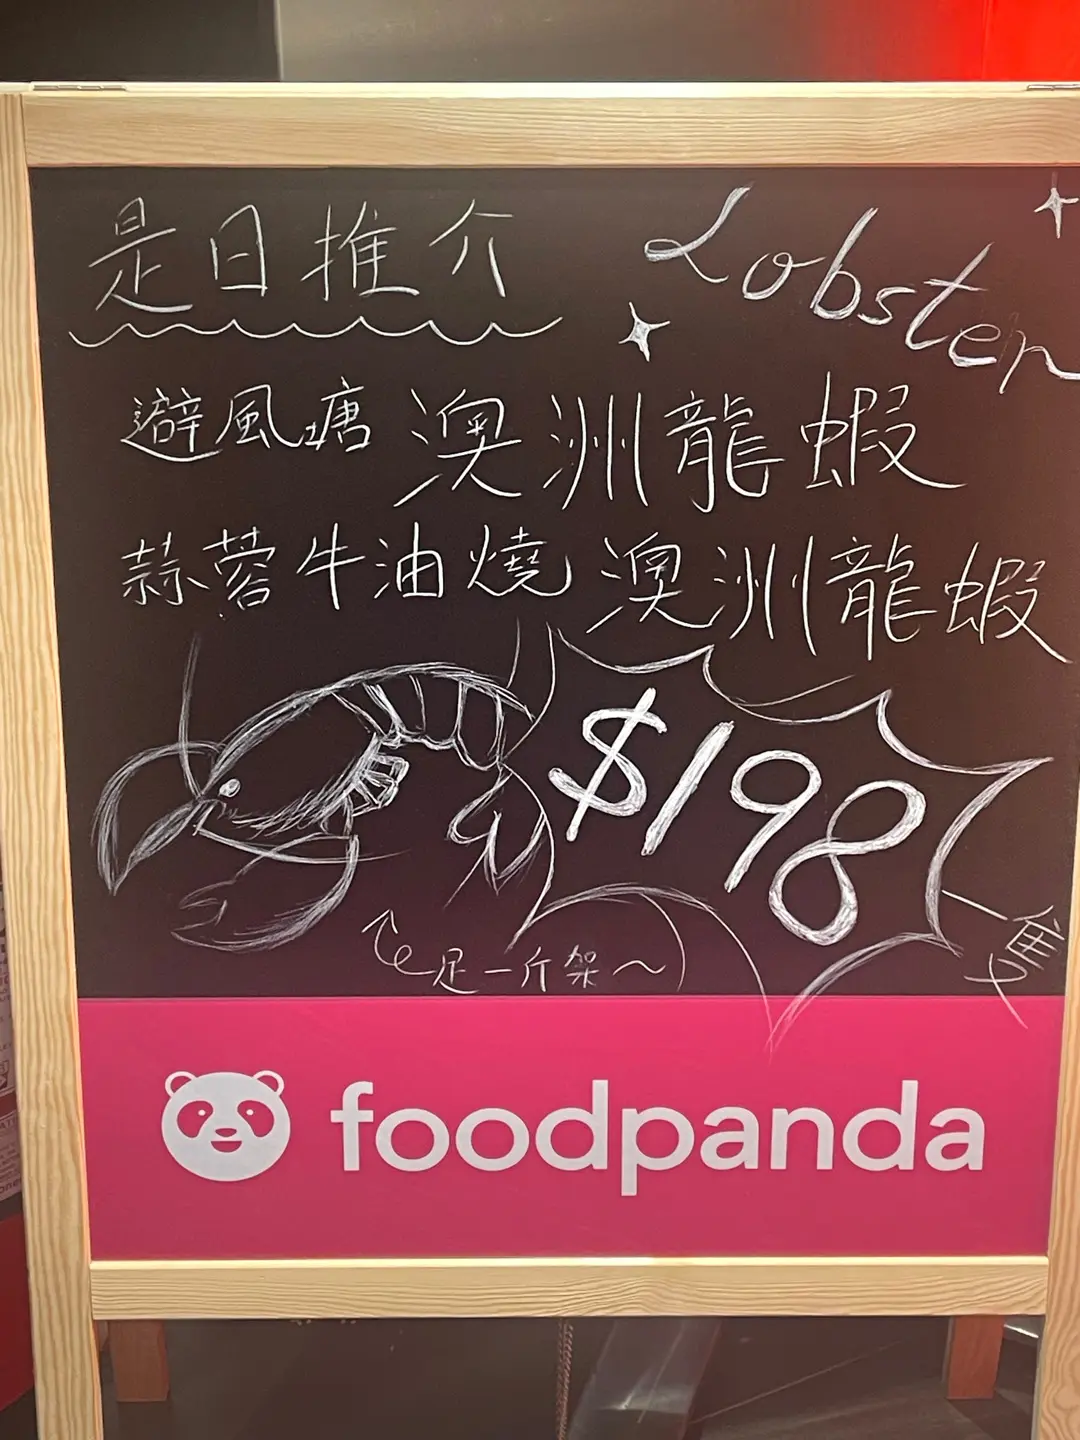 是日推介
Lobster
避風塘 澳洲龍蝦
蒜蓉牛油燒 澳洲龍蝦
$198
一隻
足一斤架~
foodpanda